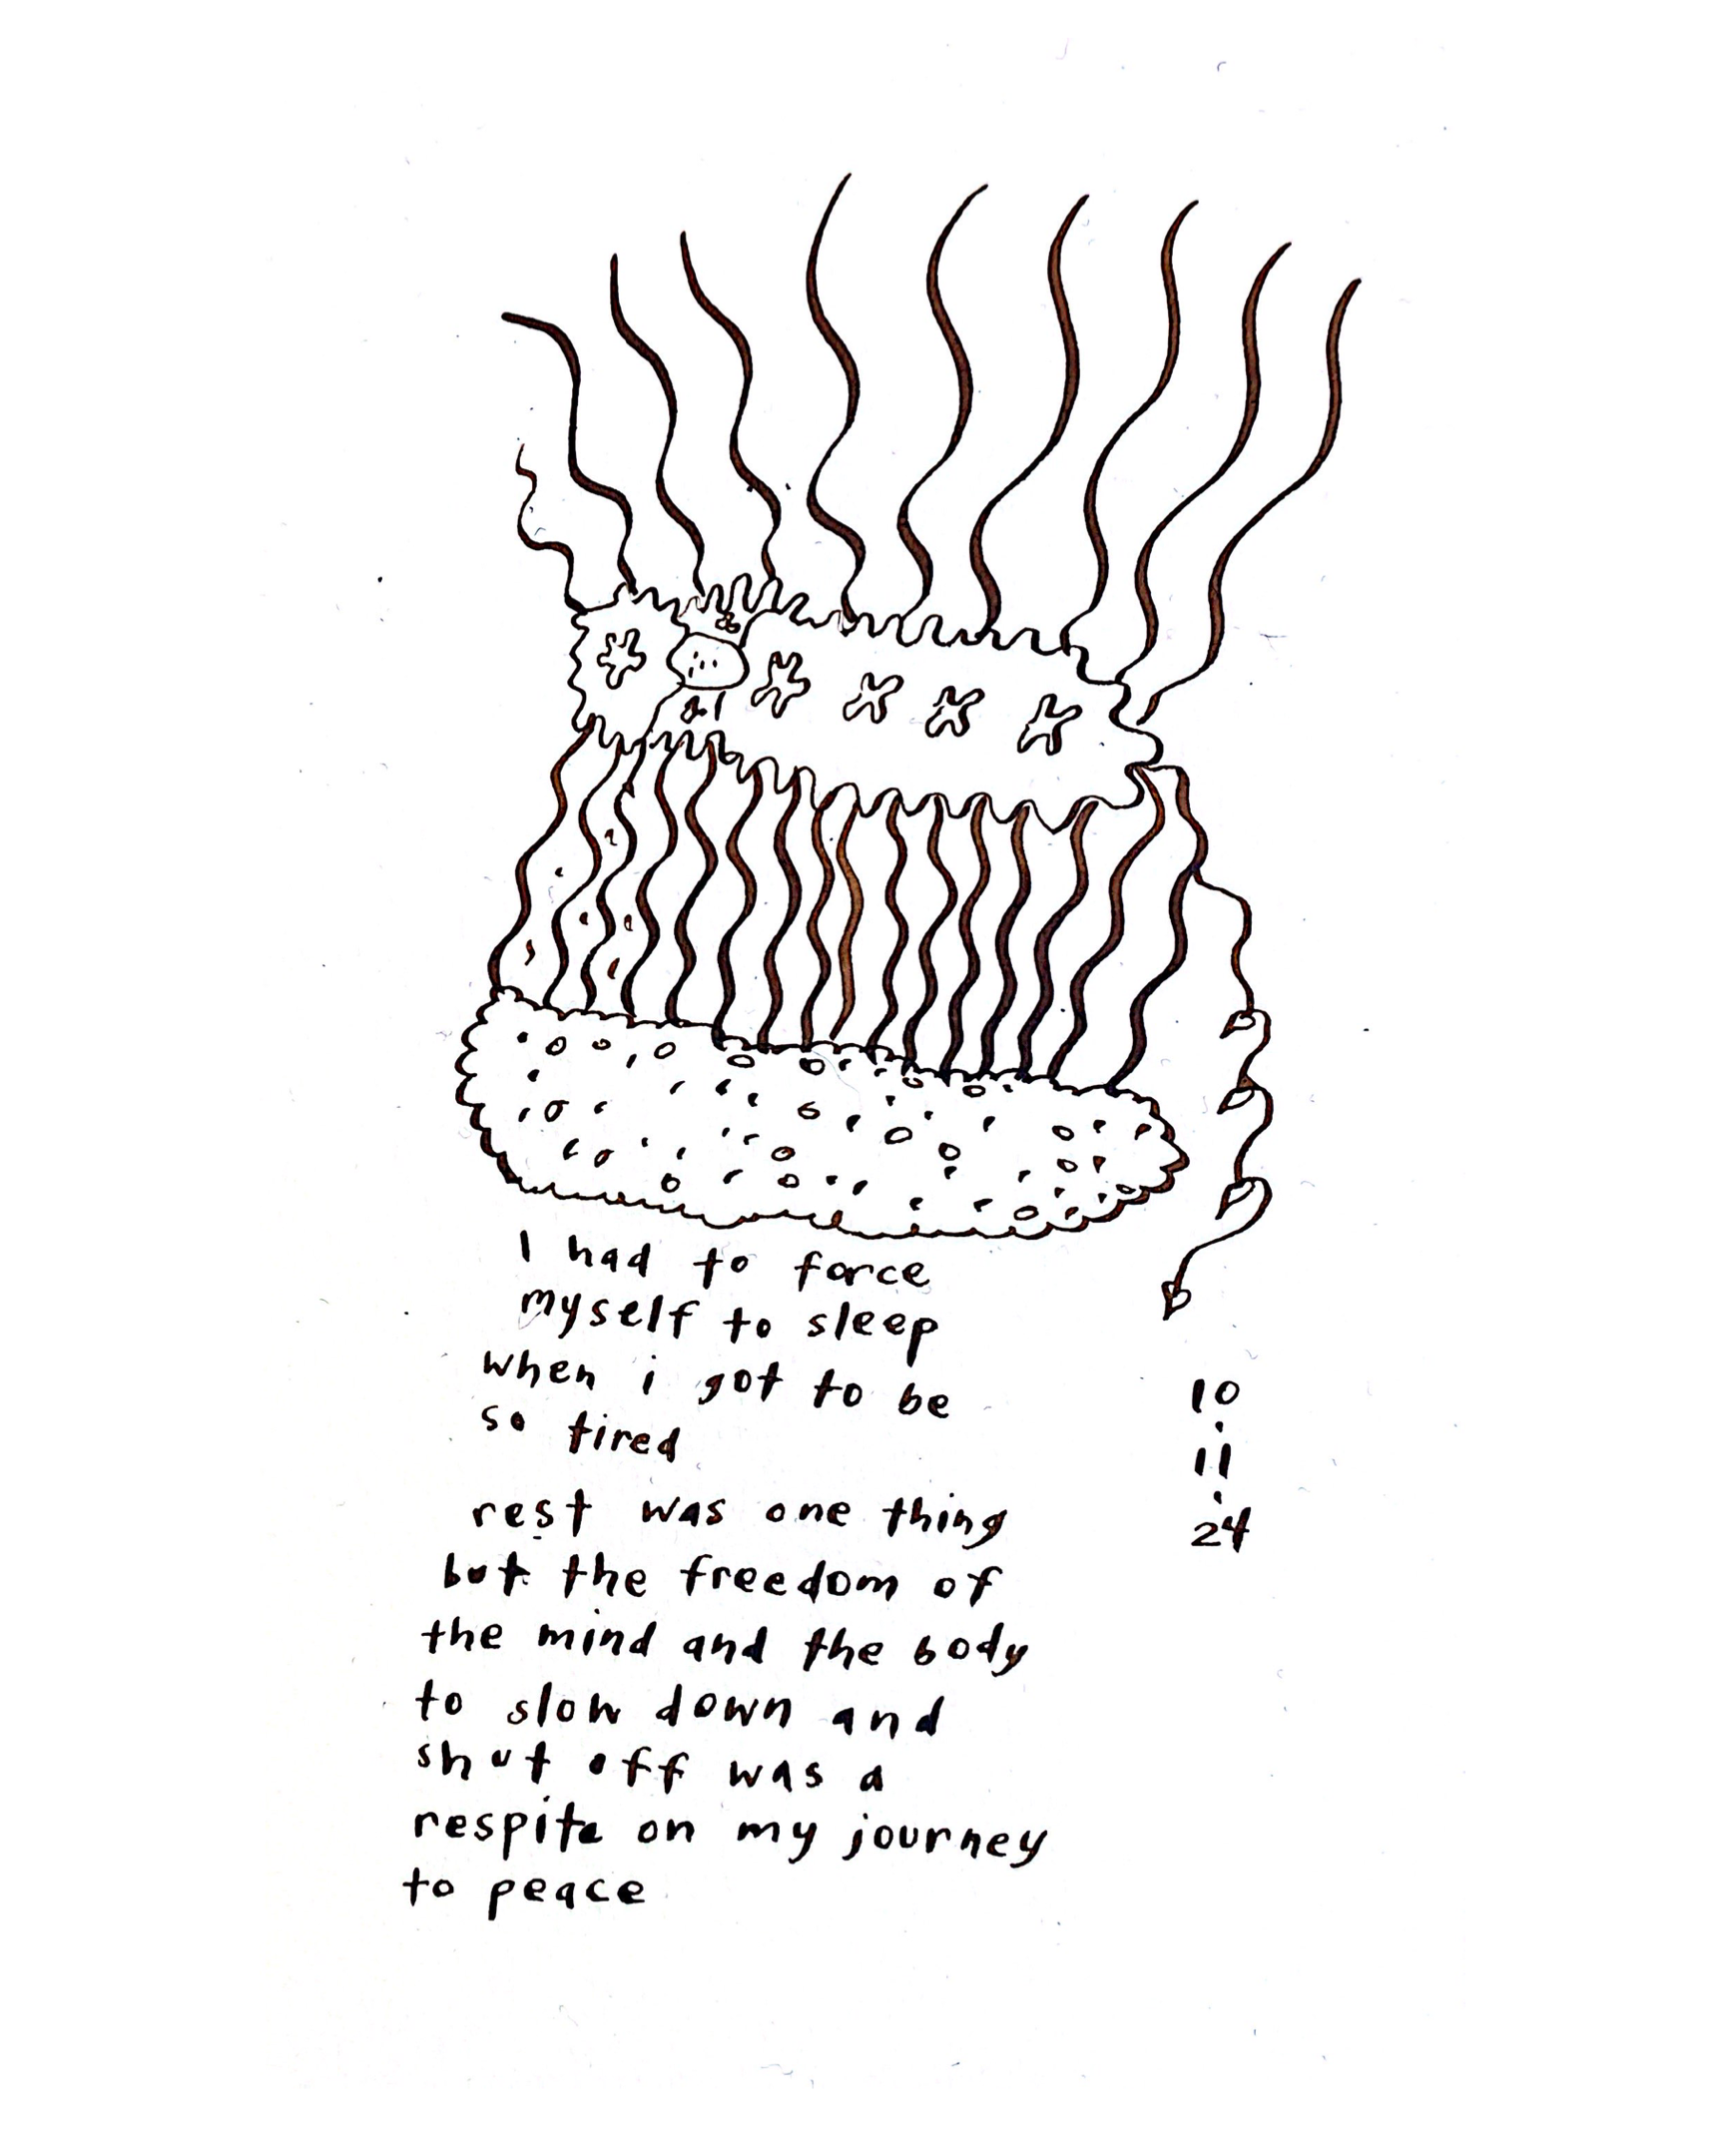 I had to force
myself to sleep
when i got to be
so tired
rest was one thing
but the freedom of
the mind and the body
to slow down and
shut off was a
respite on my journey
to peace
10
.
11
.
24